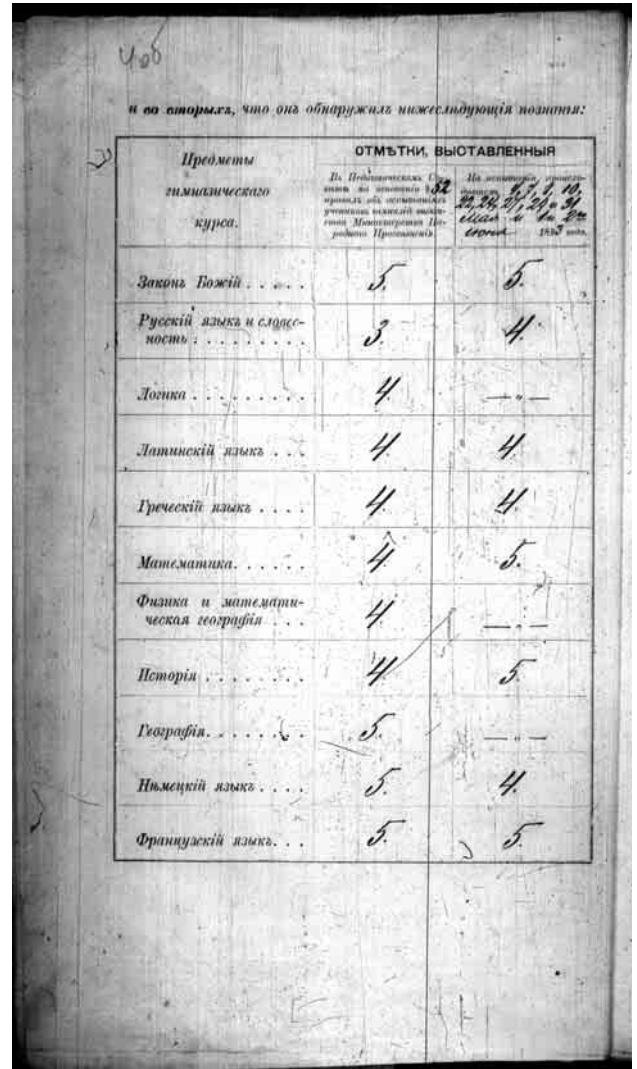 40об
и во вторыхъ, что онъ обнаружилъ нижеслѣдующія познанія:
Предметы
гимназическаго
курса.
ОТМѢТКИ, ВЫСТАВЛЕННЫЯ
Въ Педагогическомъ Со-
вѣтѣ на основаніи § 52
правилъ объ испытаніяхъ
учениковъ гимназій вѣдом-
ства Министерства На-
роднаго Просвѣщенія.
На испытаніи, происхо-
дившемъ 10,
22, 24, 27, 29 и 31
Мая и 1 и 2го
іюня 1893 года.
Законъ Божій . . . . . 5. 5.
Русскій языкъ и словес-
ность . . . . . . . . . 3. 4.
Логика . . . . . . . . . 4. — „ —
Латинскій языкъ . . . 4. 4.
Греческій языкъ . . . . 4. 4.
Математика. . . . . . . 4. 5.
Физика и математи-
ческая географія . . . 4. — „ —
Исторія . . . . . . . . 4. 5.
Географія. . . . . . . . 5. — „ —
Нѣмецкій языкъ . . . . 5. 4.
Французскій языкъ. . . 5. 5.